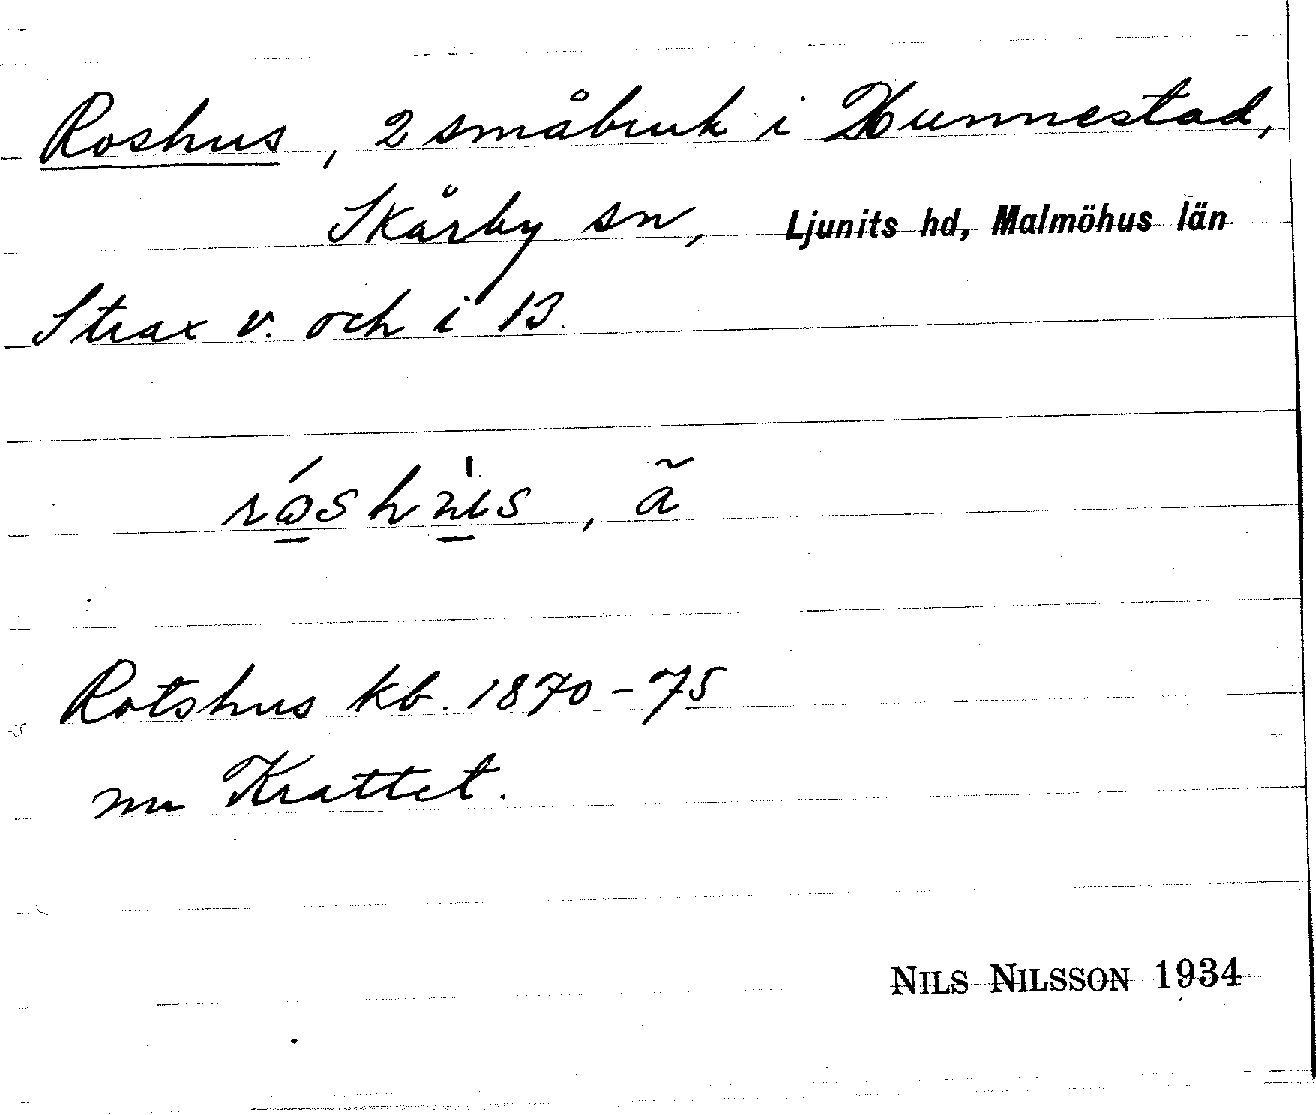 Roshus, 2 småbruk i Hunnestad,
Skårby sn, Ljunits hd, Malmöhus län
Strax v. och i 13.
, ã
Rotshus kb. 1870-75
nu Krattet.
NILS NILSSON 1934